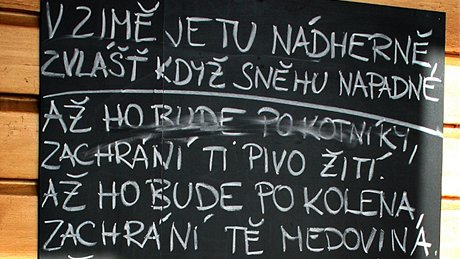 V ZIMĚ JE TU NÁDHERNĚ,
ZVLÁŠŤ KDYŽ SNĚHU NAPADNE,
AŽ HO BUDE PO KOTNÍKY,
ZACHRÁNÍ TI PIVO ŽITÍ.
AŽ HO BUDE PO KOLENA,
ZACHRÁNÍ TĚ MEDOVINA.